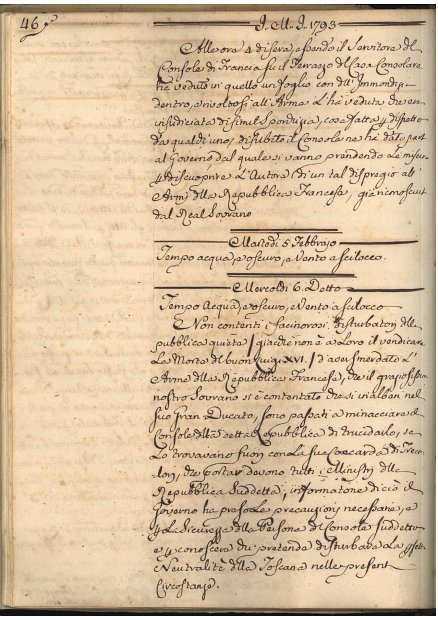 46
I. M. I. 1793
Alle ore 4 di sera, essendo il Servitore del
Console di Francia su il Terrazzo di Casa Consolare
hà veduto in quello un foglio con dell'Immondi=
dentro, e rivoltosi all'Arme l'hà veduta che era
di simile sporchizia, cosa fatta p dispetto
da qualcuno, di subito il Console ne hà dato part
al Governo dal quale si vanno prendendo le misure
p discuoprire l'Autore di un tal dispregio all'
Armi della Repubblica Francese, già riconosciut
dal Real Sovrano
Martedì 5 Febbrajo
Tempo acqua, e oscuro, e Vento a scilocco.
Mercoldì 6. Detto
Tempo Acqua, e oscuro, e Vento a scilocco
Non contenti i facinorosi, disturbatori della
pubblica quiete / giacchè non è a Loro il vendicare
La Morte del buon Luigi XVI. / d'aver smerdato l'
Arme della Repubblica Francese, che il graziosissimo
nostro Sovrano si è contentato che si inalberi nel
suo Gran-Ducato, sono passati a minacciare il
Console della detta Repubblica di trucidarlo, se
Lo trovavano fuori con La sua Coccarda di Trecc
lori, che portar devono tutti i Ministri della
Repubblica Suddetta; informatone di ciò il
Governo hà preso Le precauzioni necessarie, e
p La Sicurezza della Persona del Console suddetto
e p conoscere chi pretende disturbare La
Neutralità della Toscana nelle presenti
Circostanze.